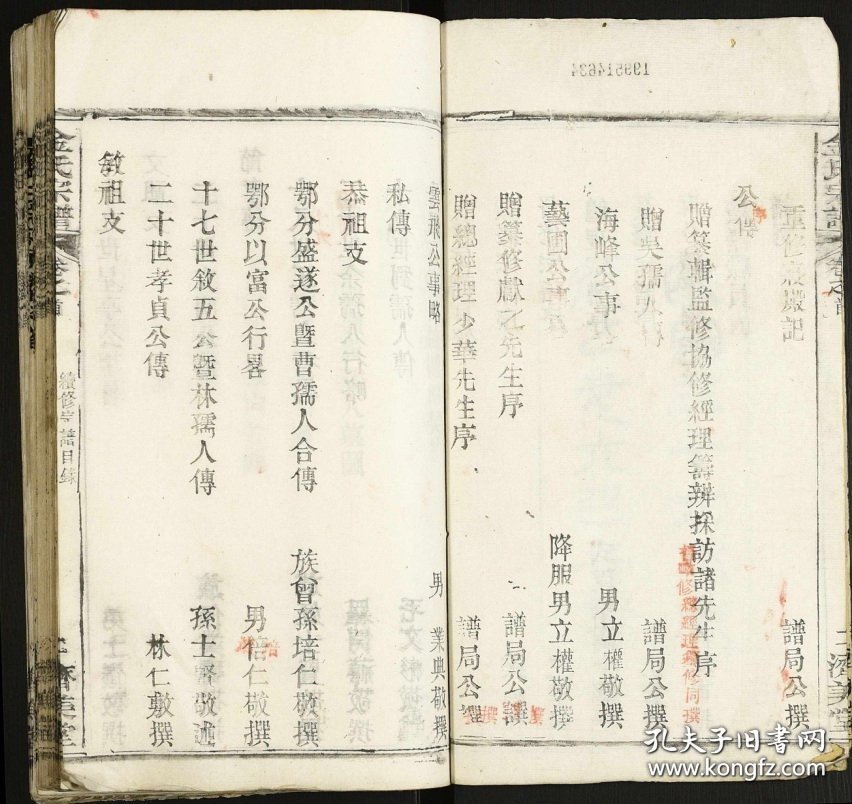 重修祠殿記 譜局公撰
公傳
贈纂輯監修協修經理籌辦採訪諸先生序
贈吳孺人序 譜局公撰
海峰公事 男立權敬撰
藝圃公事 降服男立權敬撰
贈纂修獻之先生序 譜局公撰
贈總經理少華先生序 譜局公撰
雲飛公事略 男業典敬撰
私傳
恭祖支
鄂分盛遂公暨曹孺人合傳 族曾孫培仁敬撰
鄂分以富公行畧 男倍仁敬撰
十七世敘五公暨林孺人傳 孫士騫敬述
二十世孝貞公傳 林仁敷撰
敏祖支
金氏宗譜
卷之首
續修宗譜目錄
濟美堂
金氏宗譜
卷之首
二
濟美堂
199514634
孔夫子旧书网
www.kongfz.com